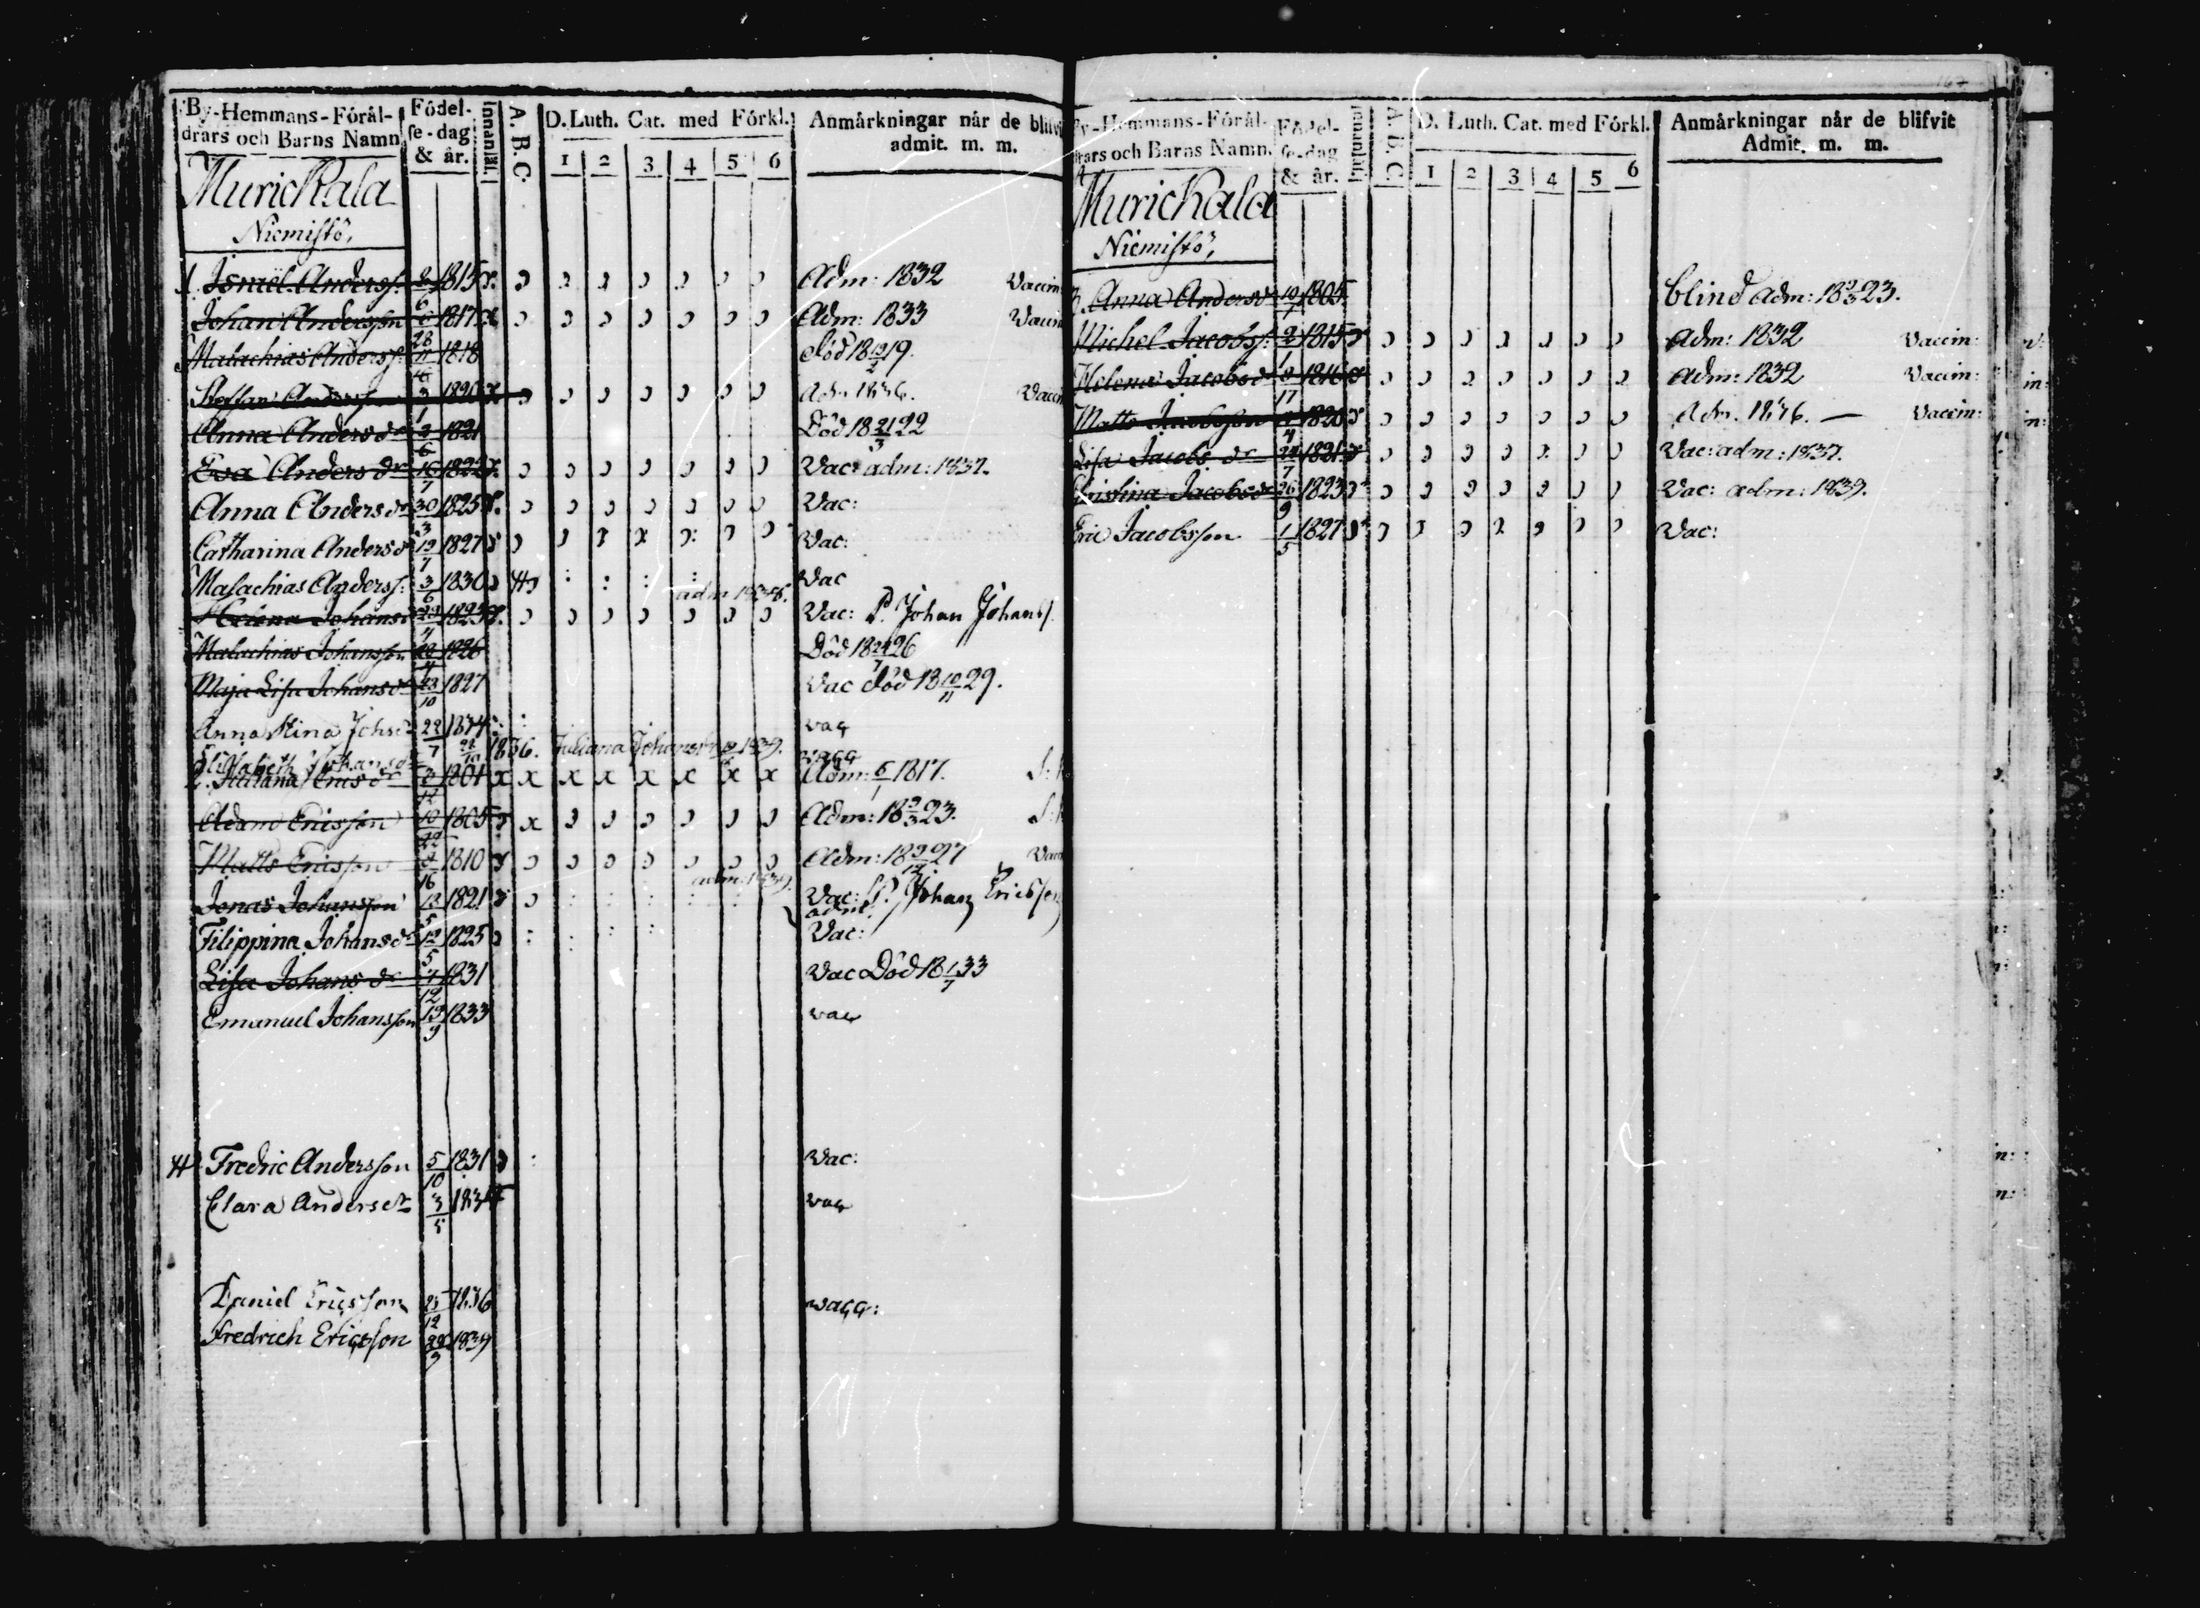 By-Hemmans-Föräl-
drars och Barns Namn.
Födel-
se-dag
& år.
Innanläs.
A. B. C.
D. Luth. Cat. med Förkl.
1 2 3 4 5 6
Anmärkningar når de blifvi
admit. m. m.
Murickala
Niemistö,
1. Ismël Anderss. 1815 Adm: 1832 Vaccin
Johan Andersson 6 1817 Adm: 1833 Vaccin
Malachias Anderss. 28/11 1818 död 18 19.
Anderss 1820 Adm 1836. Vaccin
Anna Andersdr 1821 Död 18 21/3 22
Eva Andersdr 16 1822 Vac: adm: 1837.
Anna Andersdr 30/3 1825 Vac:
Catharina Andersdr 19/7 1827 Vac:
Malachias Anderss: 3/6 1830 Vac
Helena Johansdr 1823 Vac: P. Johan Johanss.
Malachias Johansson 1826 Död 18 24/7 26
Maja Lisa Johansdr 23/10 1827 Vac död 18 10/11 29.
Anna Stina Johsdr 22/7 1834 vacc
Elisabeth Johansdr 1836. Juliana Johansdr 1839. vacc
2. Juliana Ericsdr 1801 x x x x x x x x Adm: 6/1 1817.
Adam Ericsson 10 1805 x Adm: 18 9/3 23.
Matts Ericsson 1810 Adm: 18 9/12 27
adm: 1839.
Jonas Johansson 1821 Vac: P. Johan Ericsson
Filippina Johansdr 12/5 1825 Vac:
Lisa Johansdr 1831 Vac Död 18 1/7 33
Emanuel Johansson 19/9 1833 vacc
Fredric Andersson 5/10 1831 Vac:
Clara Andersdr 3/5 1834 vacc
Daniel Ericsson 25/12 1836 vacc:
Fredrich Ericsson 1839
By-Hemmans-Föräl-
drars och Barns Namn.
Födel-
se-dag
& år.
Innanläs.
A. B. C.
D. Luth. Cat. med Förkl.
1 2 3 4 5 6
Anmärkningar når de blifvit
Admit. m. m.
Murickala
Niemistö,
3. Anna Andersdr 19/7 1805. blind adm: 18 9/3 23.
Michel Jacobss: 1815 Adm: 1832 Vaccin:
Helena Jacobsdr 1816 Adm: 1832 Vaccin:
Matts Jacobsson 1820 Adm. 1836. — Vaccin:
Lisa Jacobsdr 1821 Vac: adm: 1837.
Cristina Jacobsdr 26/9 1823 Vac: adm: 1839.
Eric Jacobsson 1/5 1827 Vac: